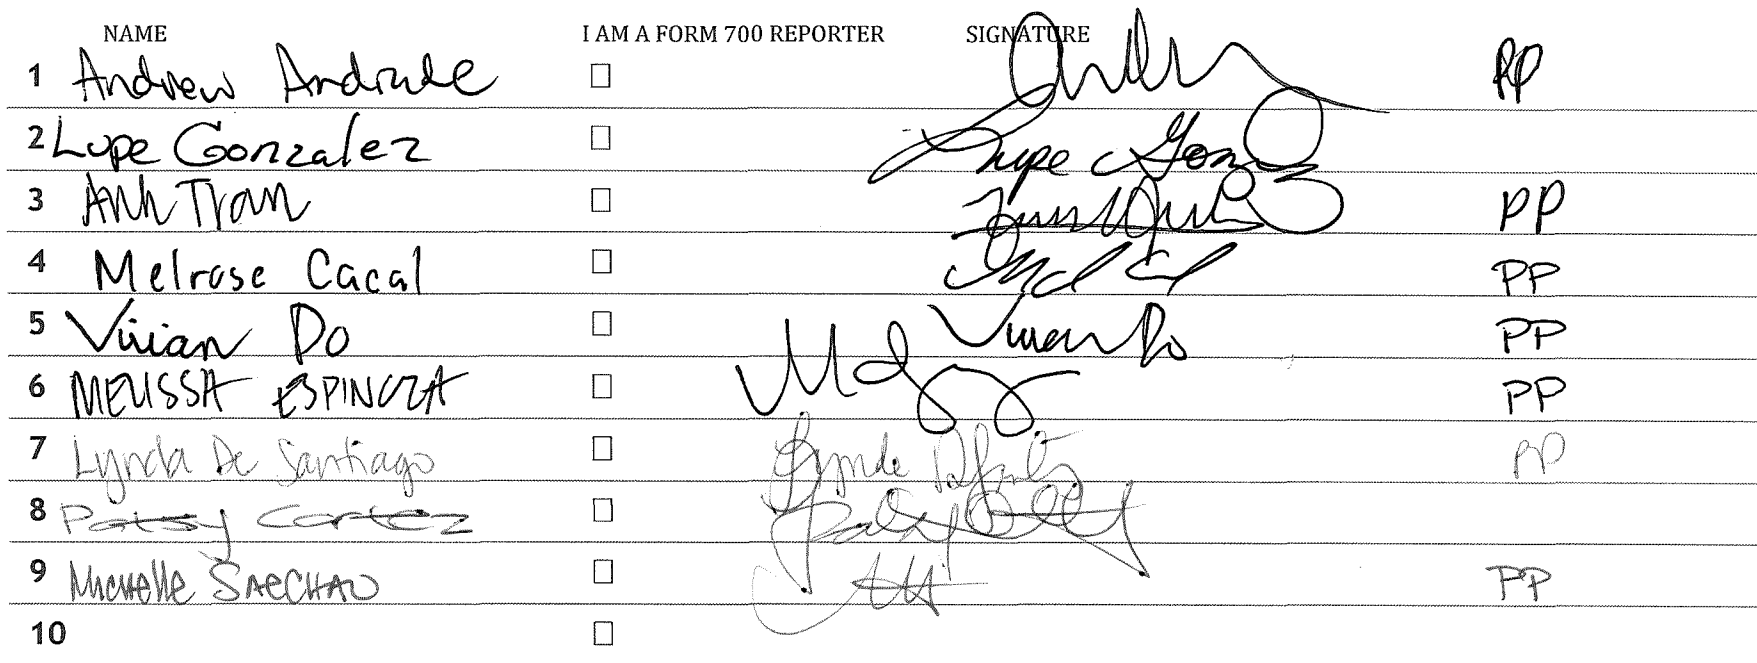 NAME I AM A FORM 700 REPORTER SIGNATURE
1 Andrew Andrade ☐ PP
2 Lupe Gonzalez ☐ Lupe Gonz
3 Anh Tran ☐ PP
4 Melrose Cacal ☐ PP
5 Vivian Do ☐ Vivian Do PP
6 MELISSA ESPINOZA ☐ PP
7 Lynda De Santiago ☐ PP
8 Patsy Cortez ☐
9 Michelle SAECHAO ☐ PP
10 ☐